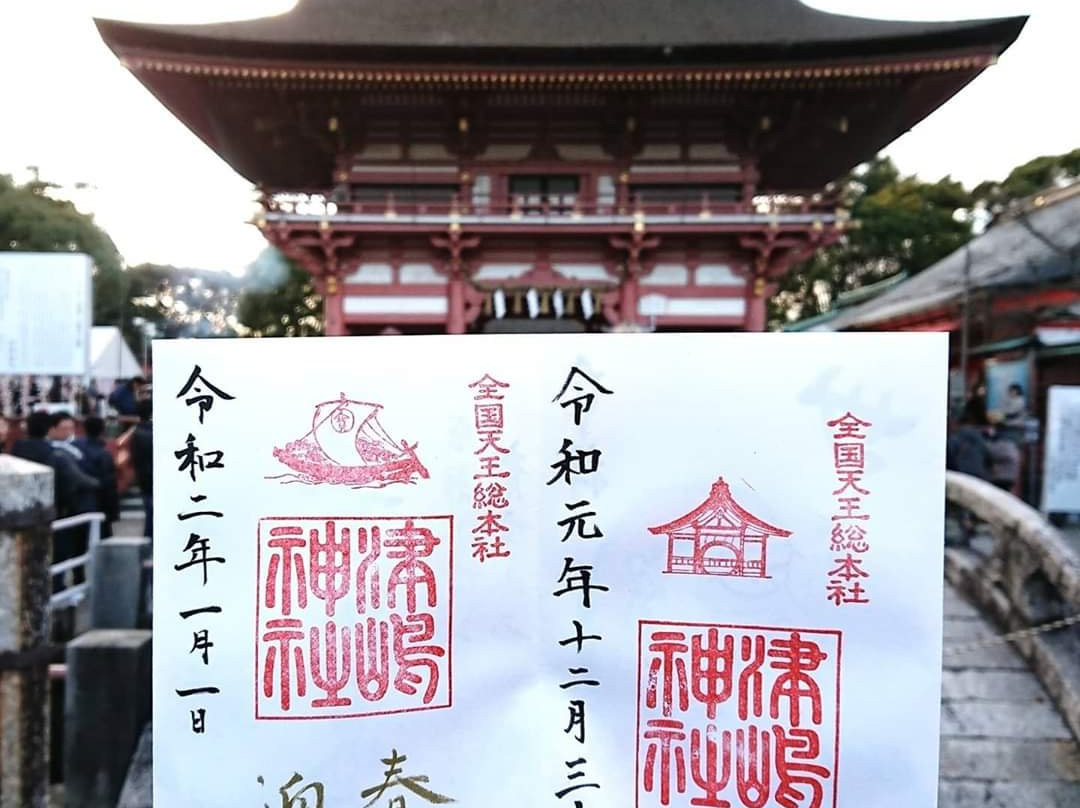 全国天王総本社
令和元年十二月三
津嶋
神社
全国天王総本社
令和二年一月一日
津嶋
神社
迎春